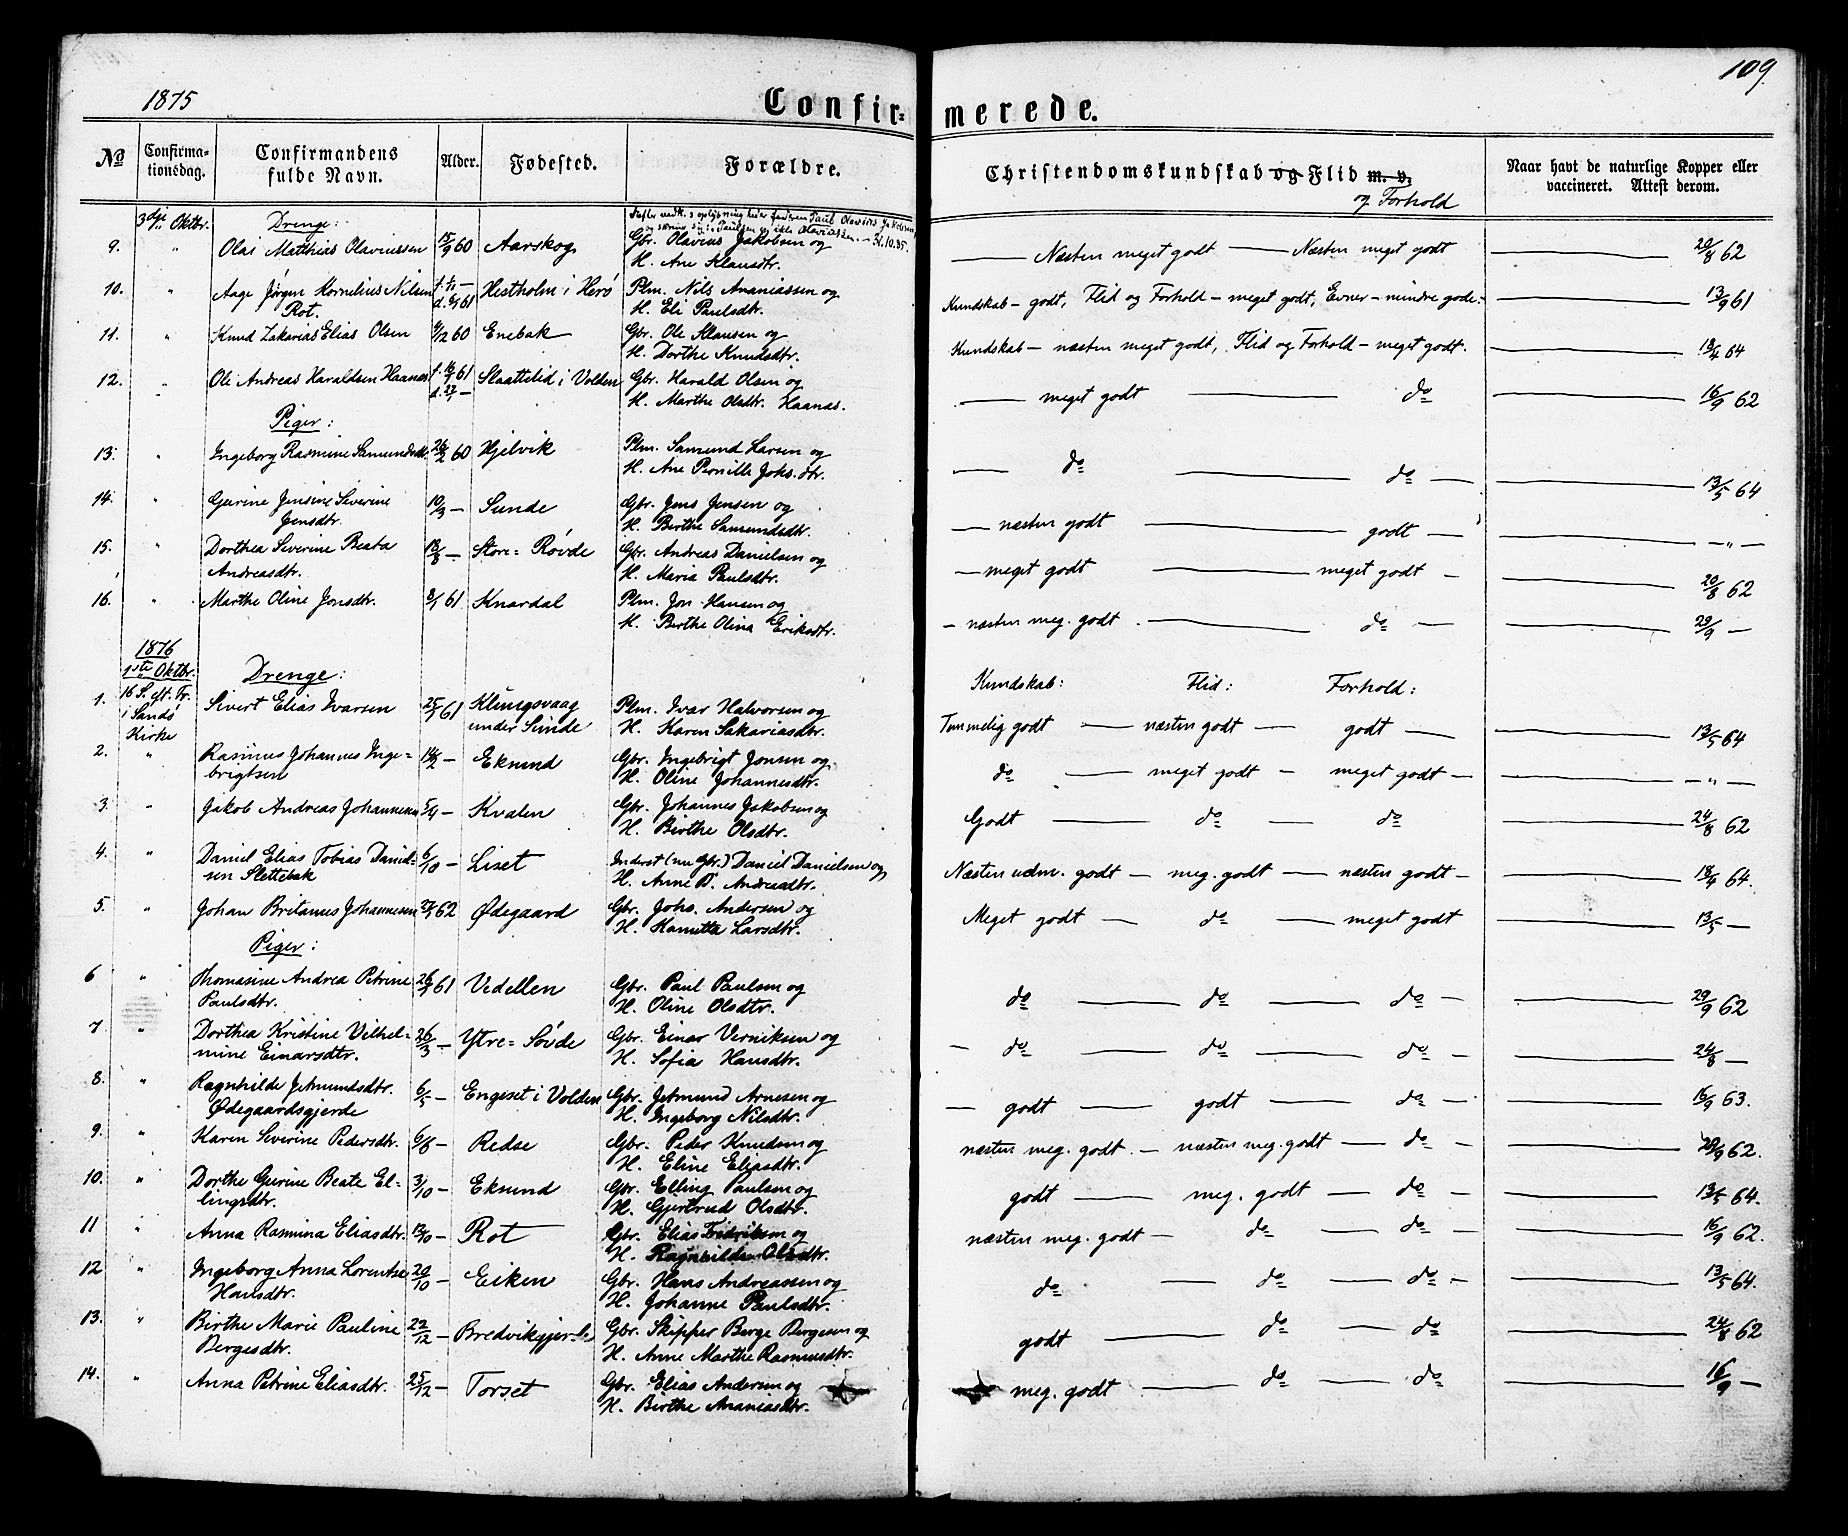 1875 Confirmerede. 109
No Confirmationsdag. Confirmandens fulde Navn. Alder. Fødested. Forældre. Christendomskundskab og Flid m. v. og Forhold Naar havt de naturlige Kopper eller vaccineret. Attest derom.
3die Oktbr. Drenge:
9. " Olai Matthias Olaviussen 15/9 60 Aarskog Gbr. Olavius Jakobsen og — Næsten meget godt — Næsten meget godt — 20/8 62
H. Ane Klausdtr.
10. " Aage Jørgen Kornelius Nilsen f. 1/1 — Hestholm i Herø Plm. Nils Ananiassen og Kundskab – godt, Flid og Forhold – meget godt, Evner – mindre gode. — 13/9 61
Rot. d. 6/1 61 H. Eli Paulsdtr.
11. " Knud Zakarias Elias Olsen 9/12 60 Enebak Gbr. Ole Klausen og Kundskab – næsten meget godt, Flid og Forhold – meget godt. — 13/4 64
H. Dorthe Knudsdtr.
12. " Ole Andreas Haraldsen Haanas f. 16/1 61 Slaattelid i Volden Gbr. Harald Olsen og — meget godt — do — 16/9 62
d. 27/1 — H. Marthe Olsdtr. Haanas.
Piger:
13. " Ingeborg Rasmine Samundsdtr. 26/2 60 Hjelvik Plm. Samund Larsen og — do — do — 13/5 64
H. Ane Pernille Johs.dtr.
14. " Gurine Jensine Severine 10/3 — Sunde Gbr. Jens Jensen og — næsten godt — godt — — " —
Jensdtr. H. Birthe Samundsdtr.
15. " Dorthea Severine Beata 18/8 — Store= Røvde Gbr. Andreas Danielsen og — meget godt — meget godt — 20/8 62
Andreasdtr. H. Maria Paulsdtr.
16. " Marthe Oline Jonsdtr. 8/1 61 Knardal Plm. Jon Hansen og — næsten meg. godt. — do — 29/9 —
H. Birthe Olina Eriksdtr.
1876
1ste Oktbr. Drenge: Kundskab: Flid: Forhold:
1. 16 S. eft. Tr. Sivert Elias Ivarsen 25/1 61 Klungsvaag Plm. Ivar Halvorsen og Temmelig godt — næsten godt — godt — 13/5 64
i Sandø under Sunde H. Karen Sakariasdtr.
Kirke
2. " Rasmus Johannes Inge= 14/2 — Eksund Gbr. Ingebrigt Jonsen og do — meget godt — meget godt — — " —
brigtsen H. Oline Johannesdtr.
3. " Jakob Andreas Johannesen 5/4 — Kvalen Gbr. Johannes Jakobsen og Godt — do — do — 24/8 62
H. Birthe Olsdtr.
4. " Daniel Elias Tobias Daniel= 6/10 — Liset Inderst (nu Gbr.) Daniel Danielsen og Næsten udm. godt — meg. godt — næsten godt — 18/4 64.
sen Slettebak H. Anne B. Andreasdtr.
5. " Johan Britanus Johannesen 27/1 62 Ødegaard Gbr. Johs. Andersen og Meget godt — do — meget godt 13/5 —
H. Kanutta Larsdtr.
Piger:
6 " Thomasine Andrea Petrine 26/1 61 Vedellen Gbr. Paul Paulsen og do — do — do — 29/9 62
Paulsdtr. H. Oline Olsdtr.
7 " Dorthea Kristine Vilhel= 26/3 — Ytre= Søvde Gbr. Einar Verniksen og — do — do — do — 24/8 —
mine Einarsdtr. H. Sofia Hansdtr.
8. " Ragnhilde Jetmundsdtr. 6/5 — Engeset i Volden Gbr. Jetmund Arnesen og — godt — godt — do — 16/9 63.
Ødegaardsgjerde H. Ingeborg Nilsdtr.
9. " Karen Severine Pedersdtr. 6/8 — Redse Gbr. Peder Knudsen og næsten meg. godt. — næsten meg. godt — do — 29/9 62.
H. Eline Eliasdtr.
10. " Dorthe Gurine Beate El= 3/10 — Eksund Gbr. Elling Paulsen og godt — meg. godt — do — 13/5 64.
lingsdtr. H. Gjertrud Olsdtr.
11 " Anna Rasmina Eliasdtr. 12/10 — Rot Gbr. Elias Fredriksen og næsten meg. godt — do — do — 16/9 62.
H. Ragnhilde Olsdtr.
12 " Ingeborg Anna Lorentse 20/10 — Eiken Gbr. Hans Andreassen og do — do — do — 13/5 64.
Hansdtr. H. Johanne Paulsdtr.
13. " Birthe Marie Pauline 22/12 — Bredvikgjerde Gbr. Skipper Berge Bergesen og godt — do — do — 24/8 62
Bergesdtr. H. Anne Marthe Rasmusdtr.
14. " Anna Petrine Eliasdtr. 25/12 — Torset Gbr. Elias Andersen og meg. godt — do — do — 16/9 —
H. Birthe Ananiasdtr.